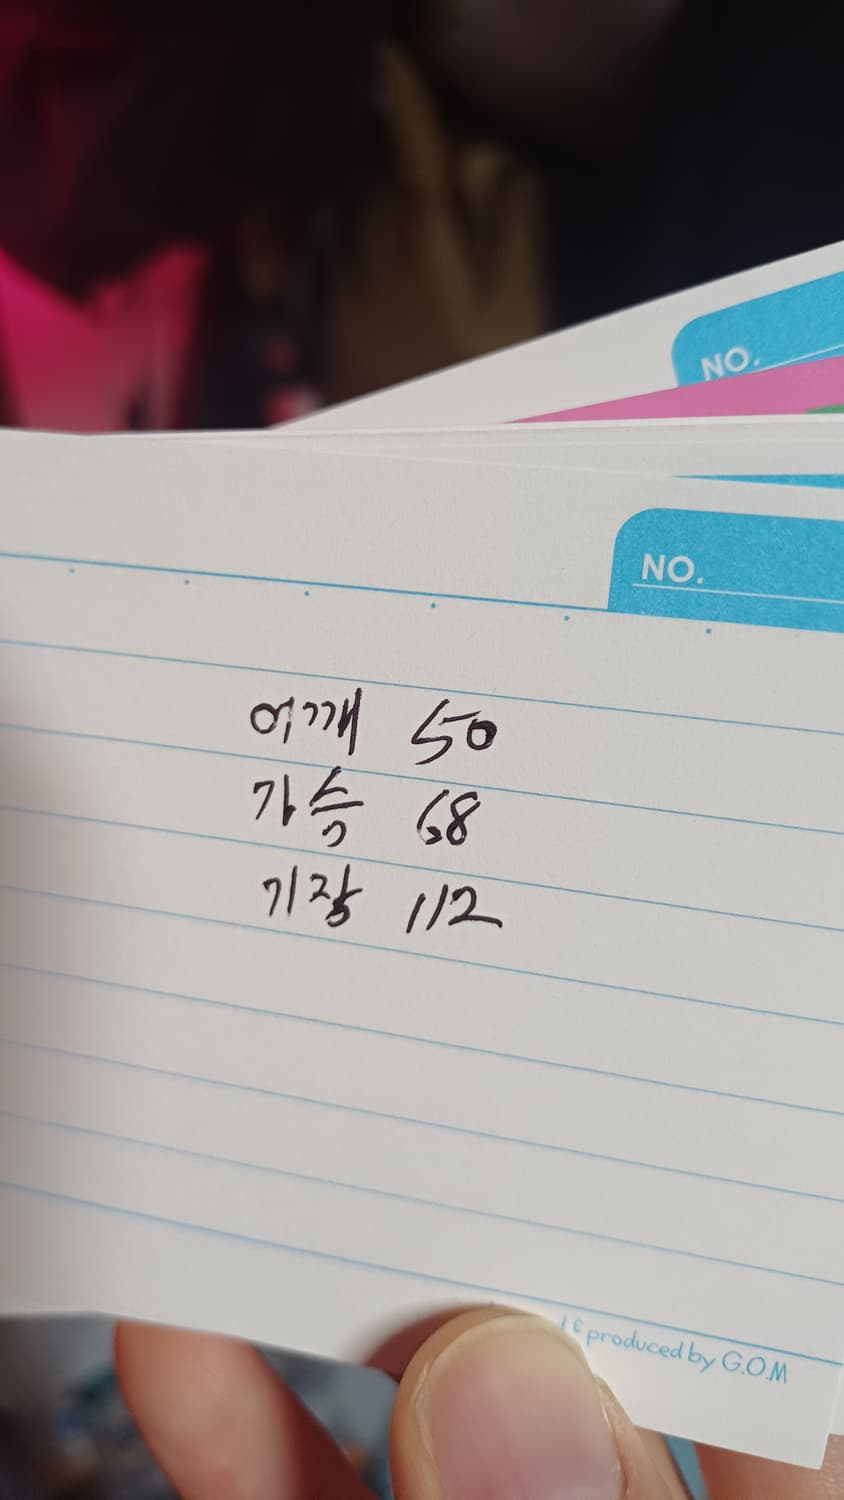 NO.
NO.
어깨 50
가슴 68
기장 112
produced by G.O.M